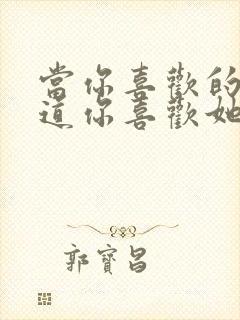 當你喜歡的
道你喜歡她
郭寶昌